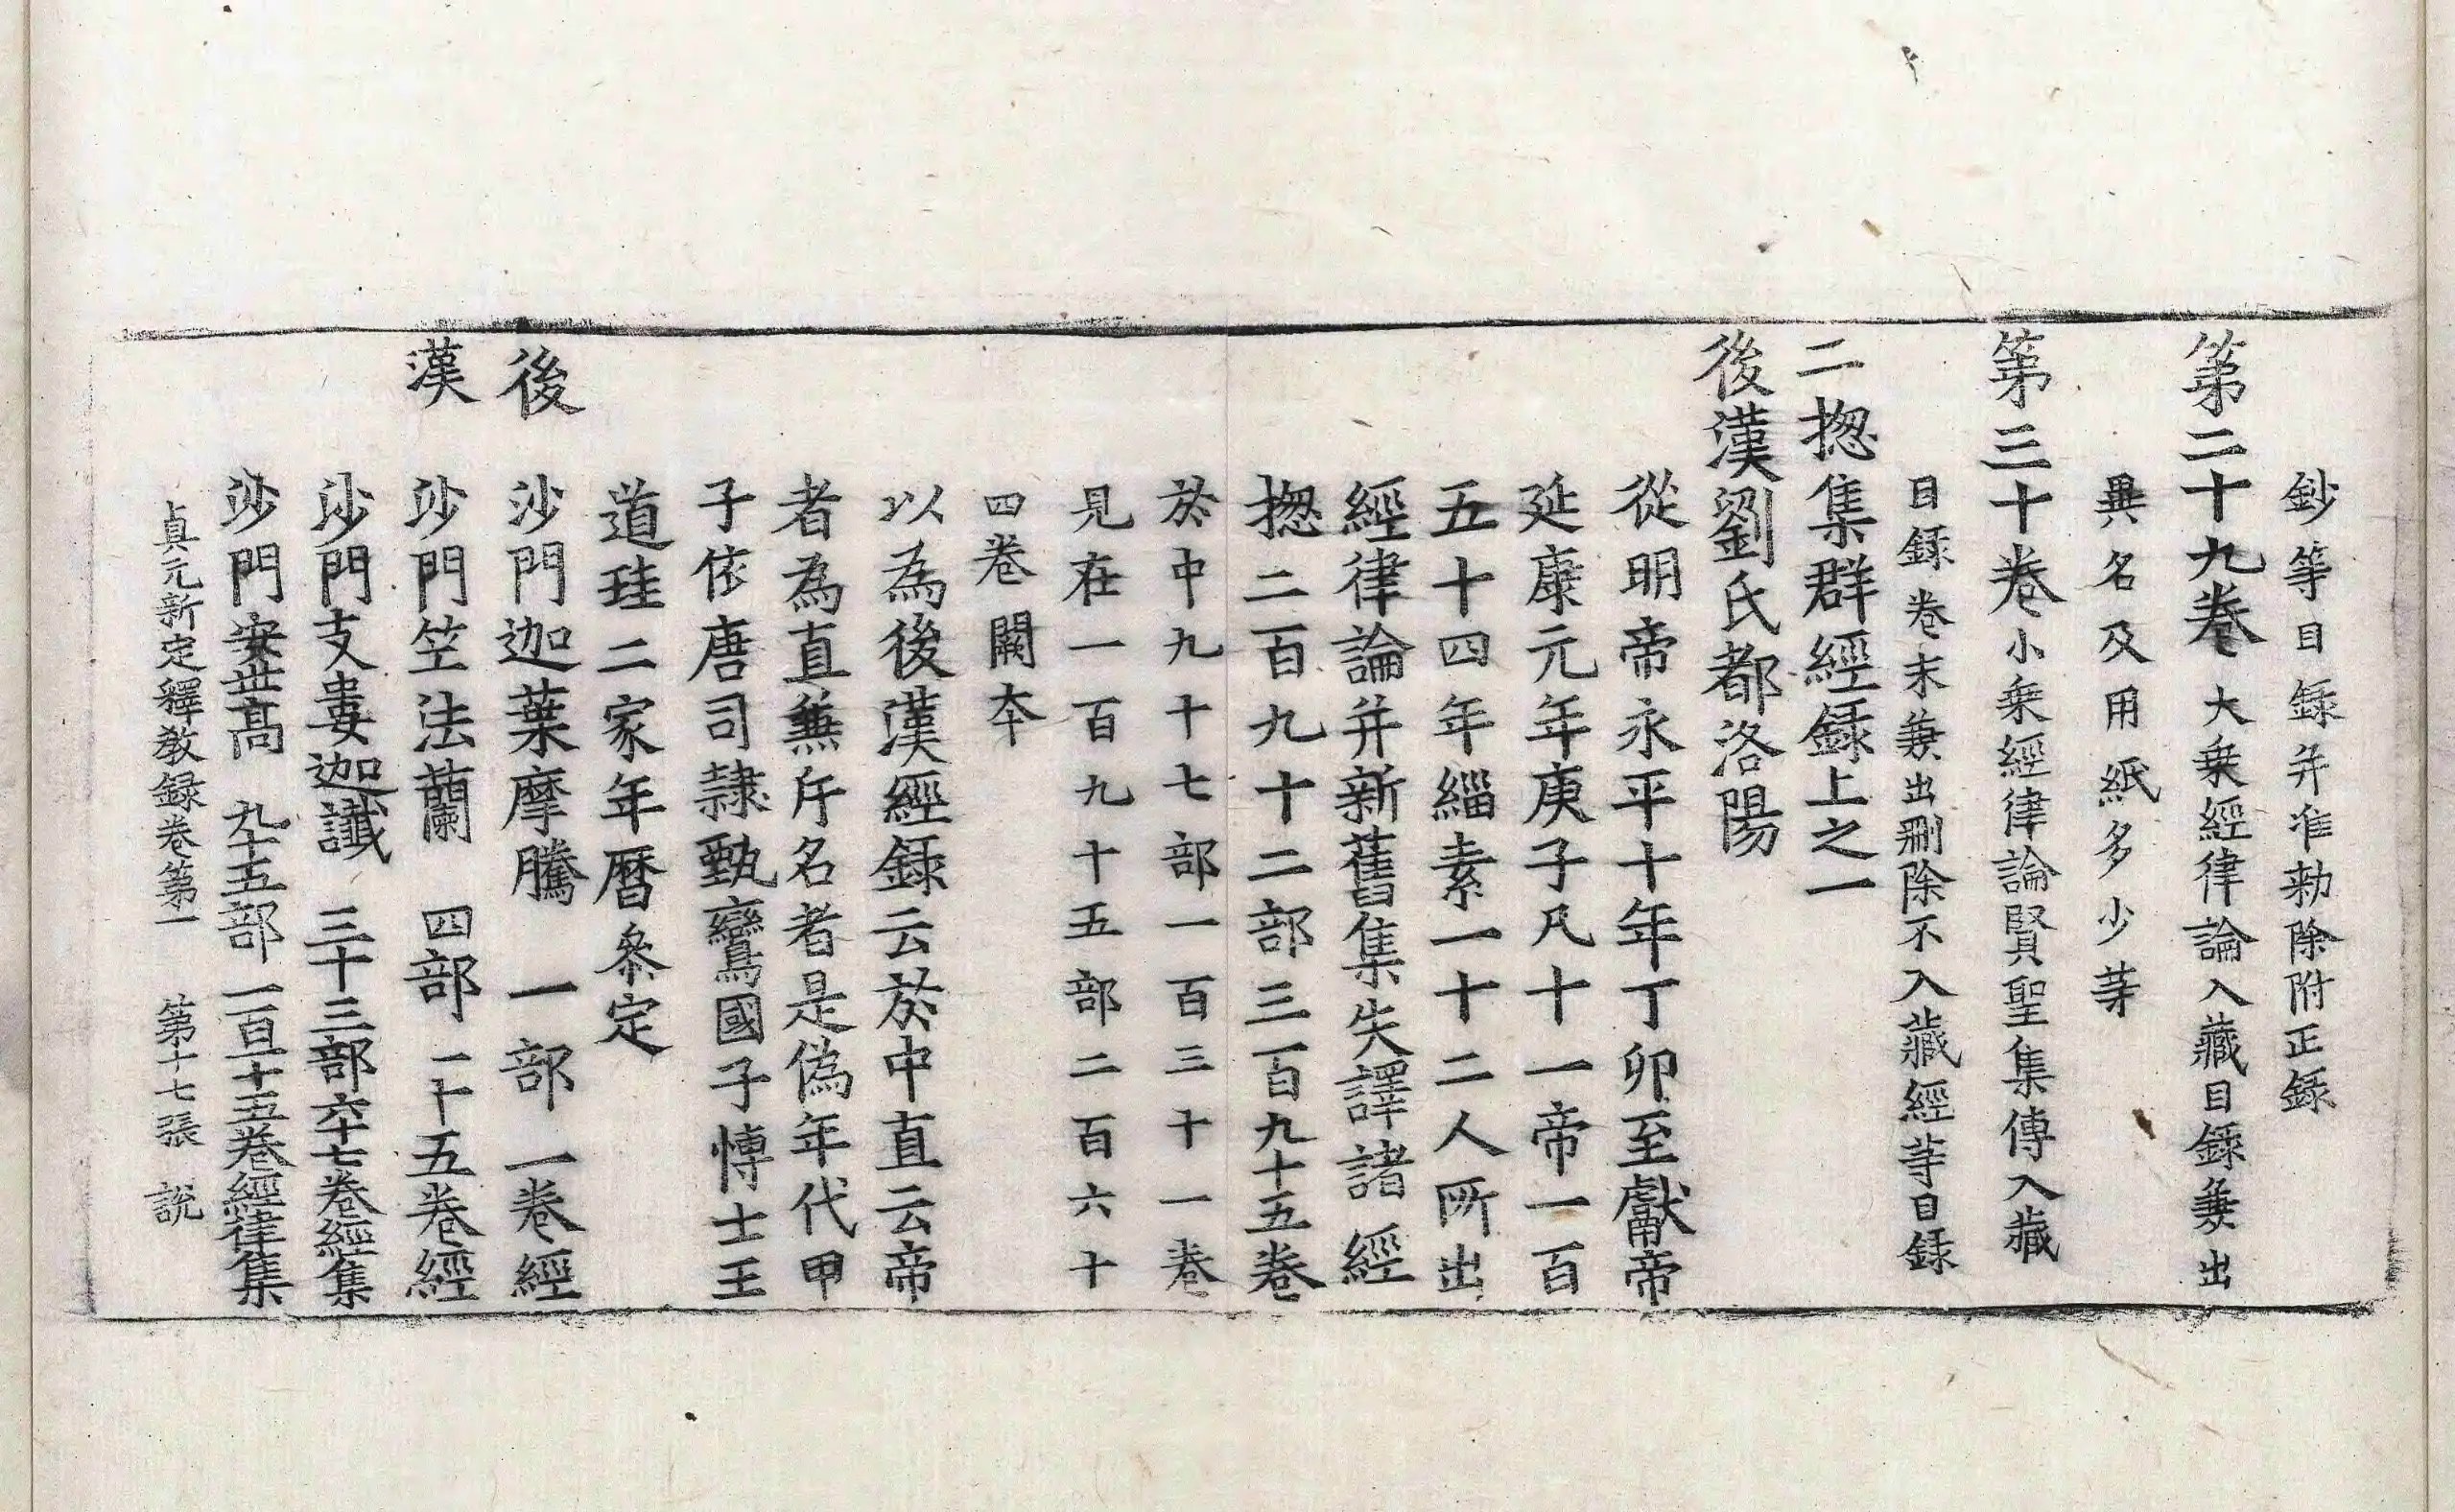 鈔等目録并准勅除附正録
第二十九卷大乗經律論入藏目録兼出
異名及用紙多少䓁
第三十卷小乗經律論賢聖集傳入藏
目録卷末兼出刪除不入藏經䓁目録
二揔集群經録上之一
後漢劉氏都洛陽
從明帝永平十年丁卯至獻帝
延康元年庚子凡十一帝一百
五十四年緇素一十二人所出
經律論并新舊集失譯諸經
揔二百九十二部三百九十五卷
於中九十七部一百三十一卷
見在一百九十五部二百六十
四卷闕本
以為後漢經録云於中直云帝
者為直無斥名者是偽年代甲
子依唐司隸甄鸞國子博士王
道珪二家年暦叅定
後　沙門迦葉摩騰　一部一卷經
漢　沙門笁法蘭　四部一十五卷經
沙門支婁迦讖　三十三部六十七卷經集
沙門安世高　九十五部一百一十五卷經律集
貞元新定釋教録卷第一　第十七張　說